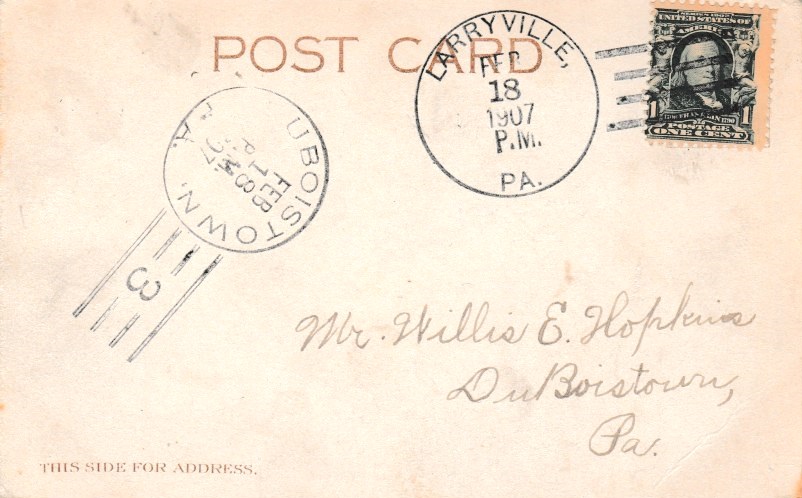 POST CARD
LARRYVILLE,
FEB
18
1907
P.M.
PA.
SERIES 1902
UNITED STATES OF
AMERICA
1 FRANKLIN 1790 1
POSTAGE
ONE CENT
UBOISTOWN, PA.
FEB
18
P.M.
07
3
Mr. Willis E. Hopkins
DuBoistown,
Pa.
THIS SIDE FOR ADDRESS.